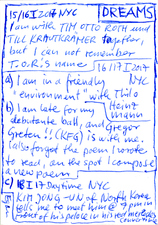 15/16 I 2017 NYC DREAMS
I am with TIM OTTO ROTH and
TILL KRAUTKRÄMER together
but I can not remember
T.O.R's name 16/17 I 2017
a) I am in a friendly NYC
"environment" with Thilo
Heinzmann
b) I am late for my
debutante ball, and Gregor
Greten!! (KFG) is with me,
I also forgot the poem I wrote
to read, on the spot I compose
a new poem
c) 18 I 17 Daytime NYC
KIM JONG-UN of North Korea
tells me to meet him at 7 am in
front of his palace in his red mercedes